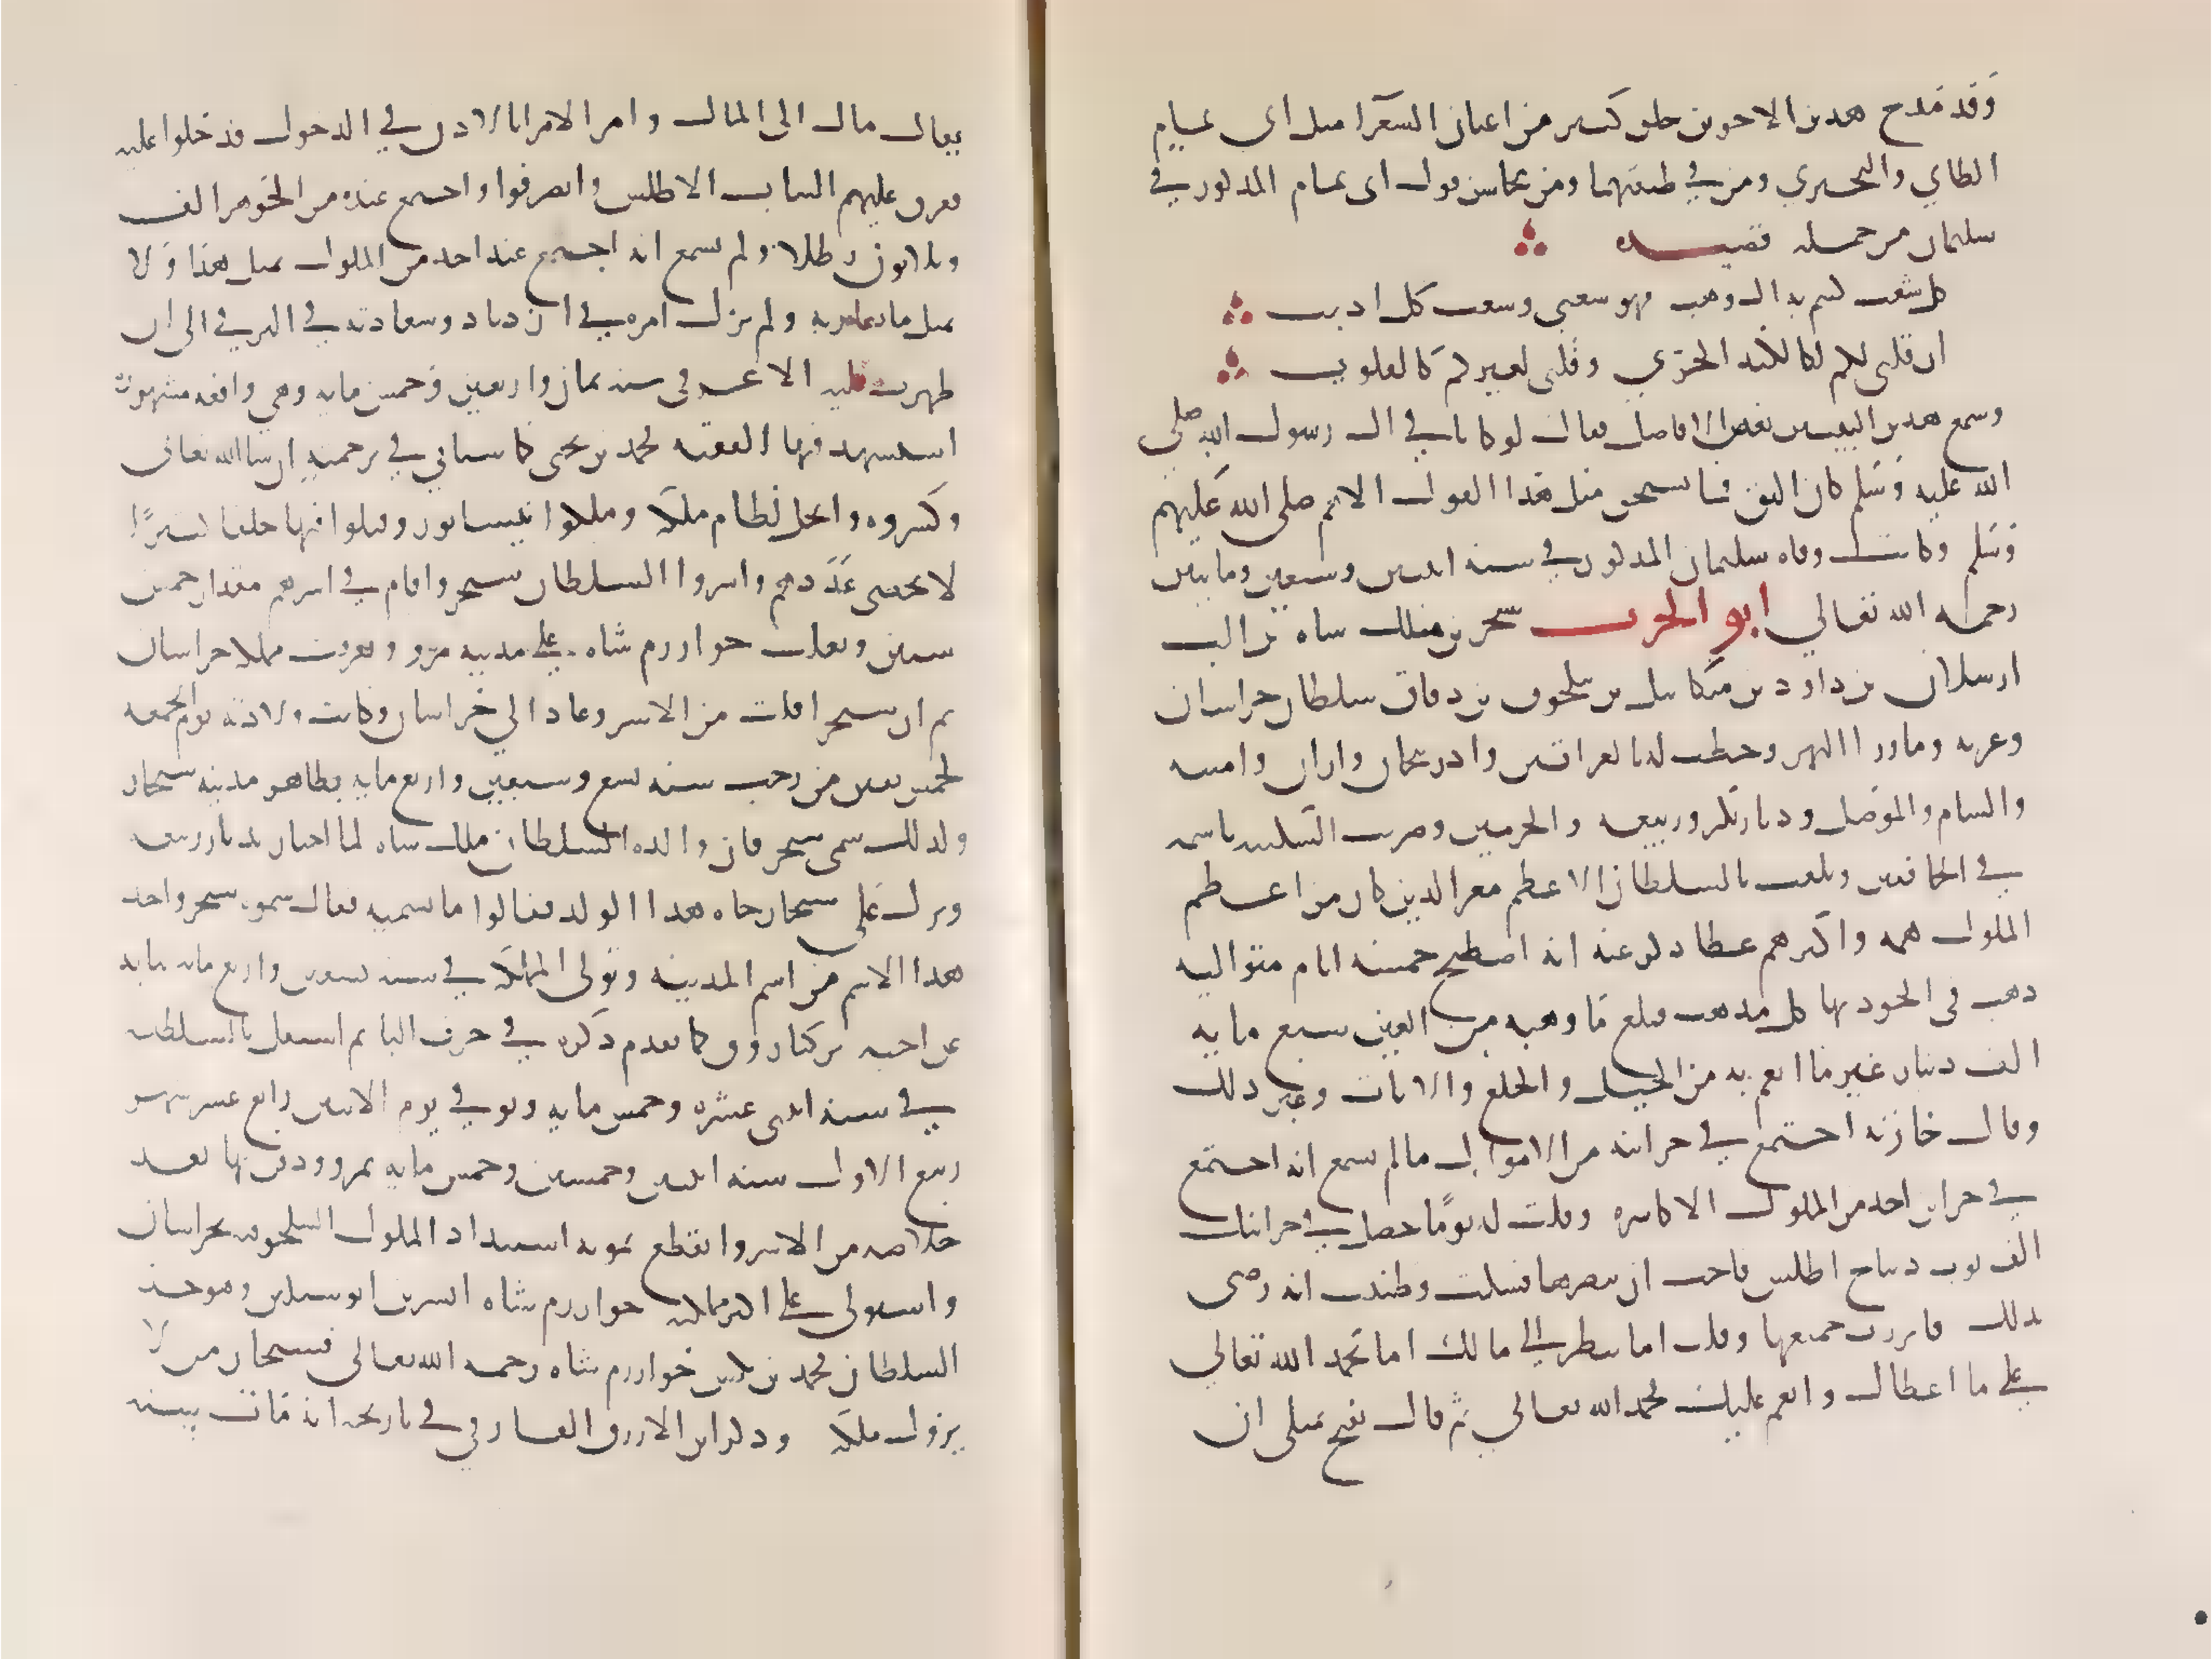 وقد مدح هذين الاخوين خلق كثير من اعيان الشعرا مثل ابي تمام
الطاي والبحتري ومن في طبقتهما ومن محاسن قول ابي تمام المذكور في
سليمان من جملة قصيده
كل شعب كنتم به ال وهب فهو شعبي وشعب كل اديب
ان قلبي لكم لكالكبد الحرّي وقلبي لغيركم كالقلوب
وسمع هذين البيتين بعض الافاضل فقال لو كانا في ال رسول الله صلى
الله عليه وسلم كان اليق فما يستحق مثل هذا القول الا هم صلى الله عليهم
وسلم وكانت وفاه سليمان المذكور في سنه اثنتين وسبعين ومايتين
رحمه الله تعالي ابو الحرث سنجر بن ملك شاه بن الب
ارسلان بن داود بن ميكاييل بن سلجوق بن دقاق سلطان خراسان
وغزنه وماورا النهر وخطب له بالعراقين وادربيجان واران وارمينيه
والشام والموصل وديار بكر وربيعه والحرمين وضربت السكه باسمه
في الخافقين وتلقب بالسلطان الاعظم معز الدين كان من اعظم
الملوك همه واكثرهم عطا ذكر عنه انه اصطبح خمسة ايام متواليه
ذهب في الجود بها كل مذهب فبلغ ما وهبه من العين سبع مايه
الف دينار غير ما انعم به من الخيل والخلع والاثاث وغير ذلك
وقال خازنه اجتمع في خزانته من الاموال ما لم يسمع انه اجتمع
في خزاين احد من الملوك الاكاسره وقلت له يومًا حصل في خزانتك
الف ثوب ديباج اطلس واحب ان تبصرها فسكت وظننت انه رضي
بذلك فابرزت جميعها وقلت اما تنظر الي مالك اما تحمد الله تعالي
علي ما اعطاك وانعم عليك فحمد الله تعالي ثم قال يقبح بمثلي ان
يقال مال الى المال وامر الامرا بالاذن في الدخول فدخلوا عليه
ففرق عليهم الثياب الاطلس وانصرفوا واجتمع عنده من الجوهر الف
وثلاثون رطلا ولم يسمع انه اجتمع عند احد من الملوك بمثل هذا ولا
بمثل ما يقاربه ولم يزل امره في ازدياد وسعادته في الترقي الى ان
ظهرت عليه الاغز في سنه ثمان واربعين وخمس مايه وهي واقعه مشهوره
استشهد فيها الفقيه محمد بن يحيى كما سياتي في ترجمته ان شا الله تعالى
وكسروه وانحل نظام ملكه وملكوا نيسابور وقتلوا فيها خلقا كثيرًا
لا يحصى عددهم واسروا السلطان سنجر واقام في اسرهم مقدار خمس
سنين وتغلب خوارزم شاه علي مدينه مرو وتفرقت مملكه خراسان
ثم ان سنجر افلت من الاسر وعاد الي خراسان وكانت ولادته يوم الجمعه
لخمس بقين من رجب سنه تسع وسبعين واربع مايه بظاهر مدينه سنجار
ولذلك سمى سنجر فان والده السلطان ملك شاه لما اجتاز بديار ربيعه
ونزل على سنجار جاه هذا الولد فقالوا ما نسميه فقال سموه سنجر واخذ
هذا الاسم من اسم المدينه وتولى المملكه في سنه تسعين واربع مايه نيابه
عن اخيه بركياروق كما تقدم ذكره في حرف البا ثم استقل بالسلطنه
في سنه اثنتي عشره وخمس مايه وتوفي يوم الاثنين رابع عشر شهر
ربيع الاول سنه اثنتين وخمسين وخمس مايه بمرو ودفن بها بعد
خلاصه من الاسر وانقطع بموته استبداد الملوك السلجوقيه بخراسان
واستولى علي اكثر مملكته خوارزم شاه اتسز بن انوشتكين وهو جد
السلطان محمد بن تكش خوارزم شاه رحمه الله تعالى فسبحان من لا
يزول ملكه وذكر ابن الازرق الفارقي في تاريخه انه مات سنه